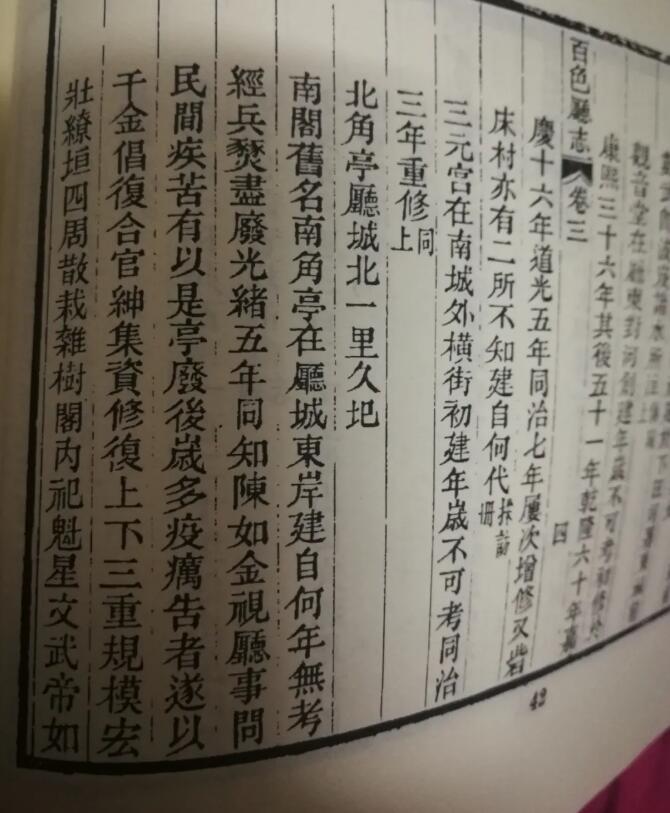 觀音堂在廳東對河創建年歲不可考初修於
康熙三十六年其後五十一年乾隆六十年嘉
百色廳志
卷三
四
慶十六年道光五年同治七年屢次增修又岩
床村亦有二所不知建自何代採訪冊
三元宮在南城外橫街初建年歲不可考同治
三年重修同上
北角亭廳城北一里久圯
南閣舊名南角亭在廳城東岸建自何年無考
經兵燹盡廢光緒五年同知陳如金視廳事問
民間疾苦有以是亭廢後歲多疫癘告者遂以
千金倡復合官紳集資修復上下三重規模宏
壯繚垣四周散栽雜樹閣內祀魁星文武帝如
43